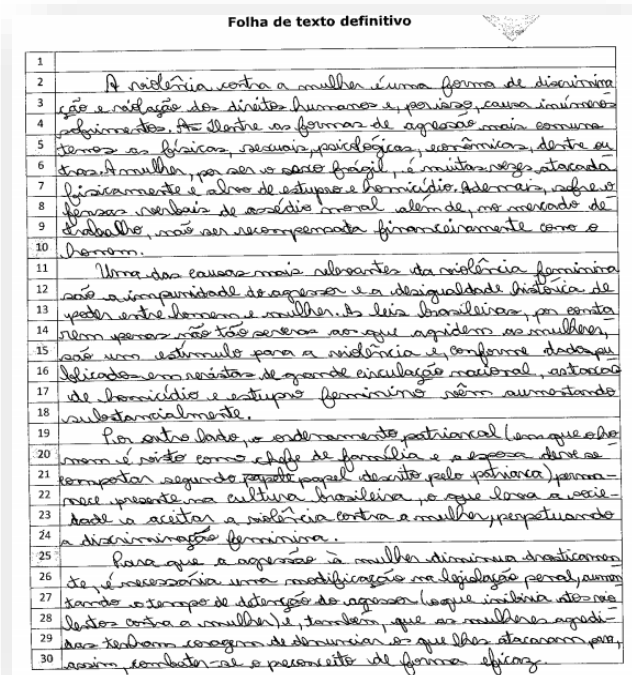 Folha de texto definitivo
1
2 A violência contra a mulher é uma forma de discrimina
3 ção e violação dos direitos humanos e, por isso, causa inúmeros
4 sofrimentos. Dentre as formas de agressão mais comuns
5 temos as físicas, sexuais, psicológicas, econômicas, dentre ou
6 tras. A mulher, por ser o sexo frágil, é muitas vezes atacada
7 fisicamente e alvo de estupro e homicídio. Ademais, sofre o
8 fensas verbais de assédio moral além de, no mercado de
9 trabalho, não ser recompensata financeiramente como o
10 homem.
11 Uma das causas mais relevantes da violência feminina
12 são a impunidade do agressor e a desigualdade histórica de
13 poder entre homem e mulher. As leis brasileiras, por conta
14 rem penas não tão severas aos que agridem as mulheres,
15 são um estímulo para a violência e, conforme dados pu
16 blicados em revistas de grande circulação nacional, as taxas
17 de homicídio e estupro feminino vêm aumentando
18 substancialmente.
19 Por outro lado, o ordenamento patriarcal (em que o ho
20 mem é visto como chefe de família e a esposa deve se
21 comportar segundo papel descrito pelo patriarca), perma-
22 nece presente na cultura brasileira, o que leva a socie-
23 dade a aceitar a violência contra a mulher, perpetuando
24 a discriminação feminina.
25 Para que a agressão à mulher diminua drasticamen
26 te, é necessária uma modificação na legislação penal, aumen
27 tando o tempo de detenção do agressor (o que inibiria atos vio
28 lentos contra a mulher) e, também, que as mulheres agredi-
29 das tenham coragem de denunciar os que lhes atacaram para,
30 assim, combater-se o preconceito de forma eficaz.